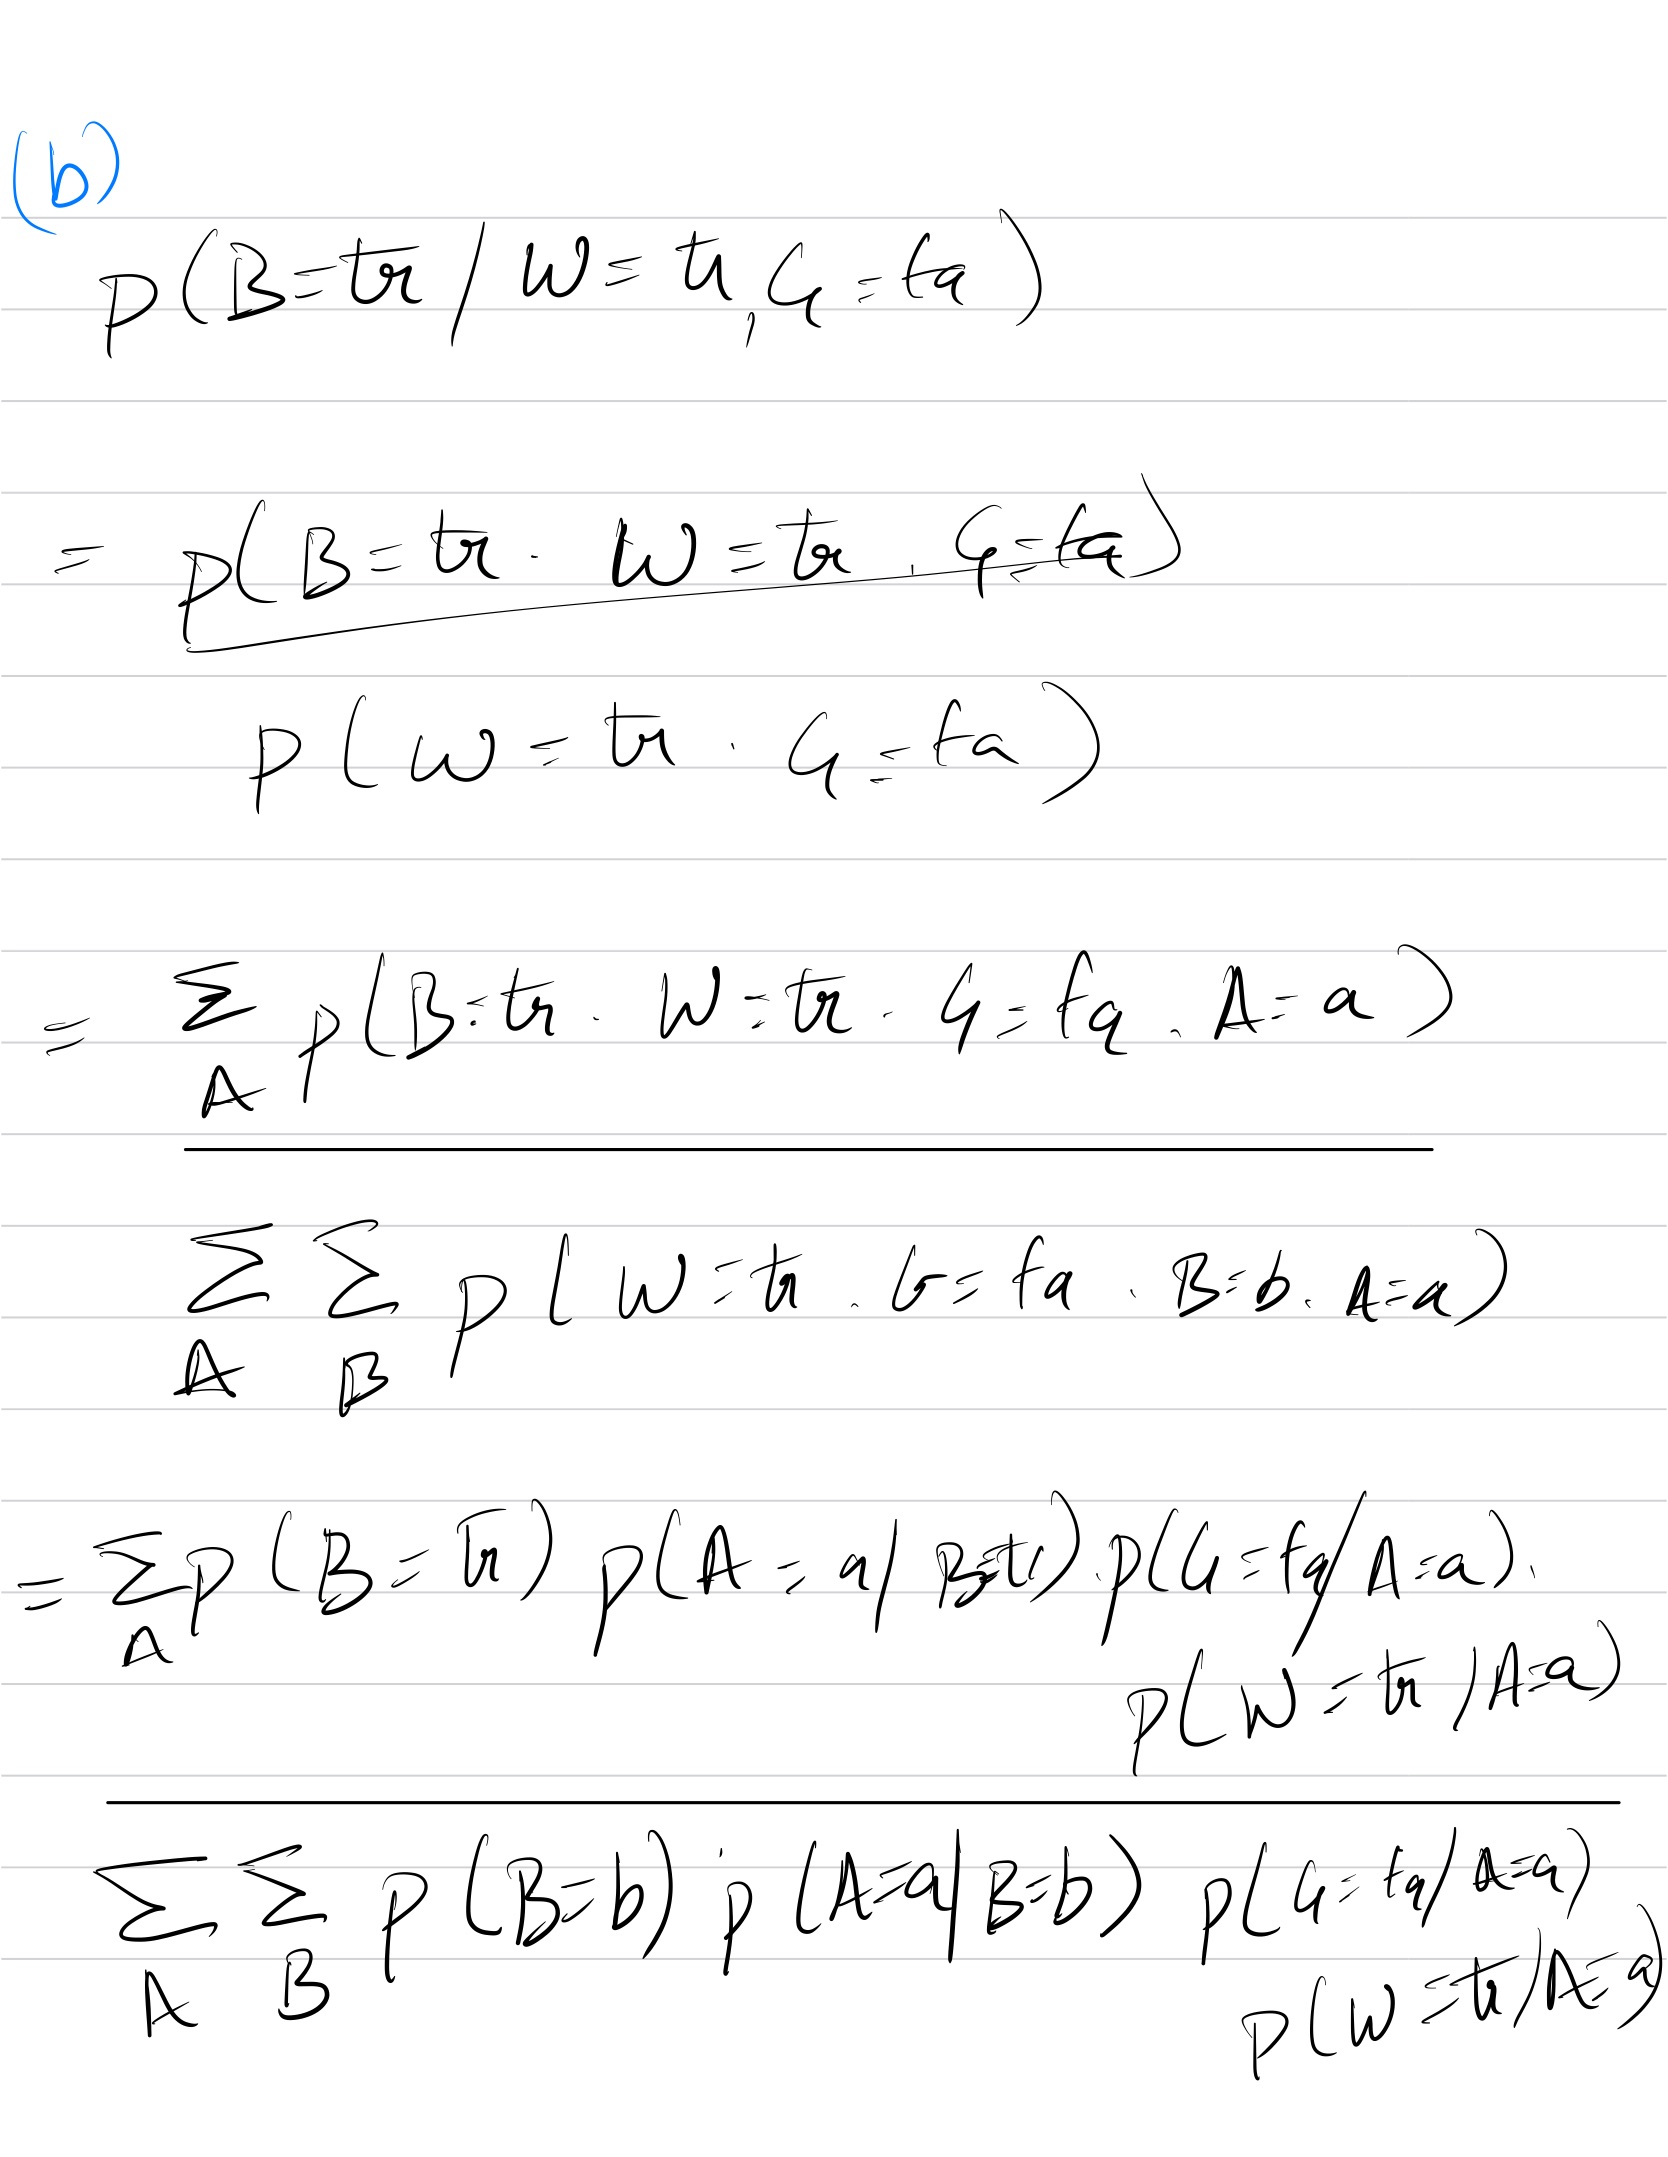 (b)
p(B=tr / W=tr, G=fa)
= p(B=tr . W=tr . G=fa)
p(W=tr . G=fa)
= Σ p(B=tr . W=tr . G=fa . A=a)
A
Σ Σ p(W=tr . G=fa . B=b . A=a)
A B
= Σ p(B=tr) p(A=a/B=tr) . p(G=fa/A=a) .
A
p(W=tr/A=a)
Σ Σ p(B=b) . p(A=a/B=b) p(G=fa/A=a)
A B
p(W=tr/A=a)